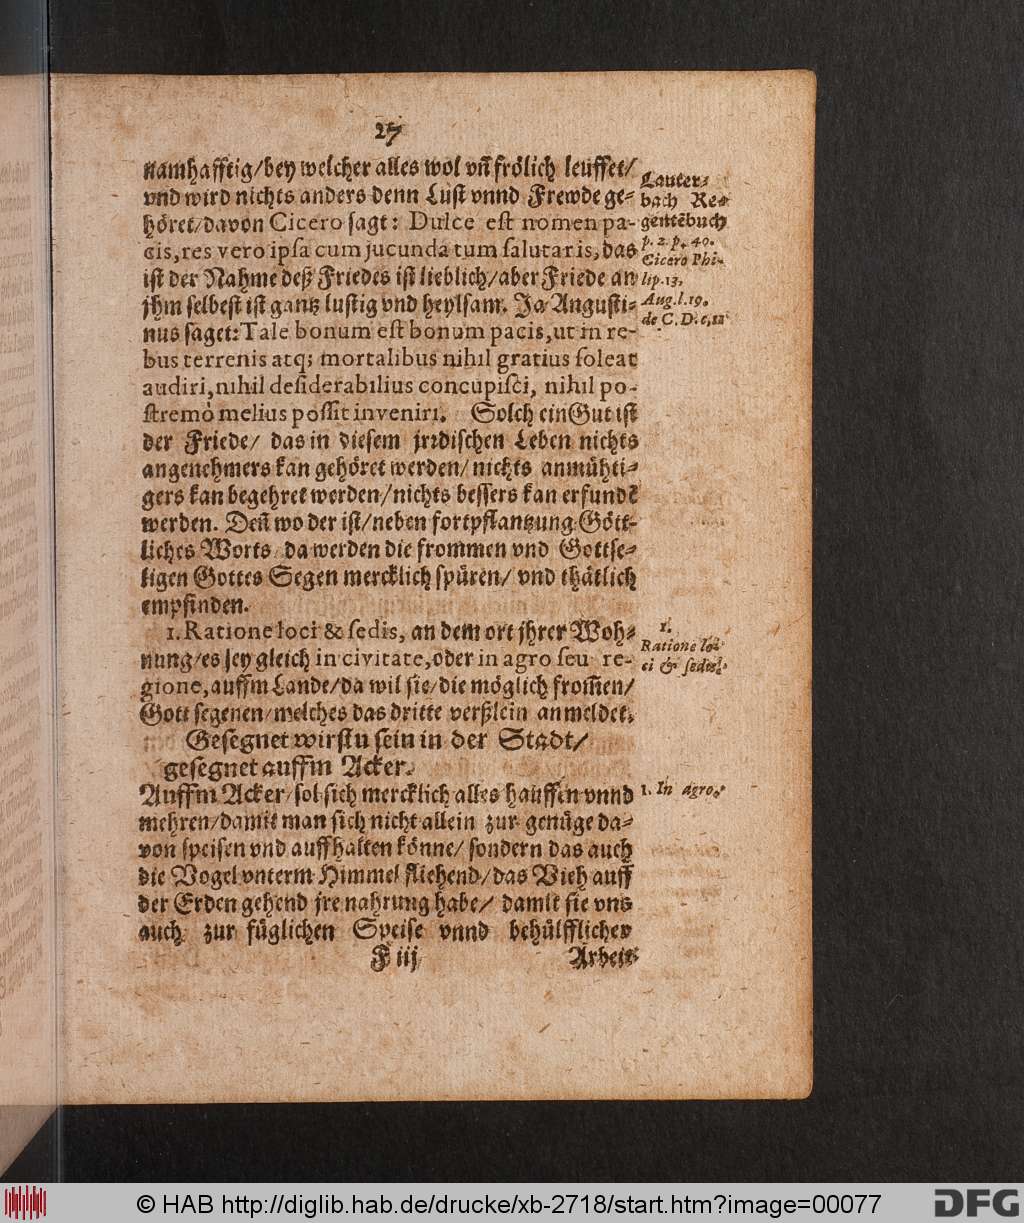 27
namhafftig/bey welcher alles wol vñ frölich leuffet/
vnd wird nichts anders denn Lust vnnd Frewde ge-
höret/davon Cicero sagt: Dulce est nomen pa-
cis, res vero ipsa cum jucunda tum salutaris, das
ist der Nahme deß Friedes ist lieblich/aber Friede an
jhm selbest ist gantz lustig vnd heylsam. Ja Augusti-
nus saget: Tale bonum est bonum pacis, ut in re-
bus terrenis atq; mortalibus nihil gratius soleat
audiri, nihil desiderabilius concupisci, nihil po-
stremò melius possit inveniri. Solch ein Gut ist
der Friede/ das in diesem jrrdischen Leben nichts
angenehmers kan gehöret werden/ nichts anmühti-
gers kan begehret werden/nichts bessers kan erfundẽ
werden. Deñ wo der ist/neben fortpflantzung Gött-
liches Worts/ da werden die frommen vnd Gottse-
ligen Gottes Segen mercklich spüren/ vnd thätlich
empfinden.
1. Ratione loci & sedis, an dem ort jhrer Woh-
nung/es sey gleich in civitate, oder in agro seu re-
gione, auffm Lande/da wil sie/die möglich from̃en/
Gott segenen/welches das dritte verßlein anmeldet.
Gesegnet wirstu sein in der Stadt/
gesegnet auffm Acker.
Auffm Acker/sol sich mercklich alles hauffen vnnd
mehren/damit man sich nicht allein zur genüge da-
von speisen vnd auffhalten könne/ sondern das auch
die Vogel vnterm Himmel fliehend/das Vieh auff
der Erden gehend jre nahrung habe/ damit sie vns
auch zur füglichen Speise vnnd behülfflicher
F iij
Arbeit
Lauter-
bach Re-
gentẽbuch
p. 2. p. 40.
Cicero Phi-
lip. 13.
Aug. l. 19.
de C. D. c. 11
1.
Ratione lo-
ci & sedis.
1. In agro.
© HAB http://diglib.hab.de/drucke/xb-2718/start.htm?image=00077
DFG